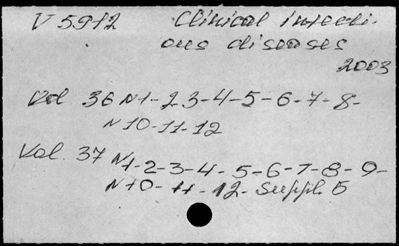 V 5912 Clinical infecti-
ous diseases
2003
Vol 36 N1-2 3-4-5-6-7-8-
N10-11-12
Vol. 37 N1-2-3-4-5-6-7-8-9-
N10-11-12-Suppl. 5